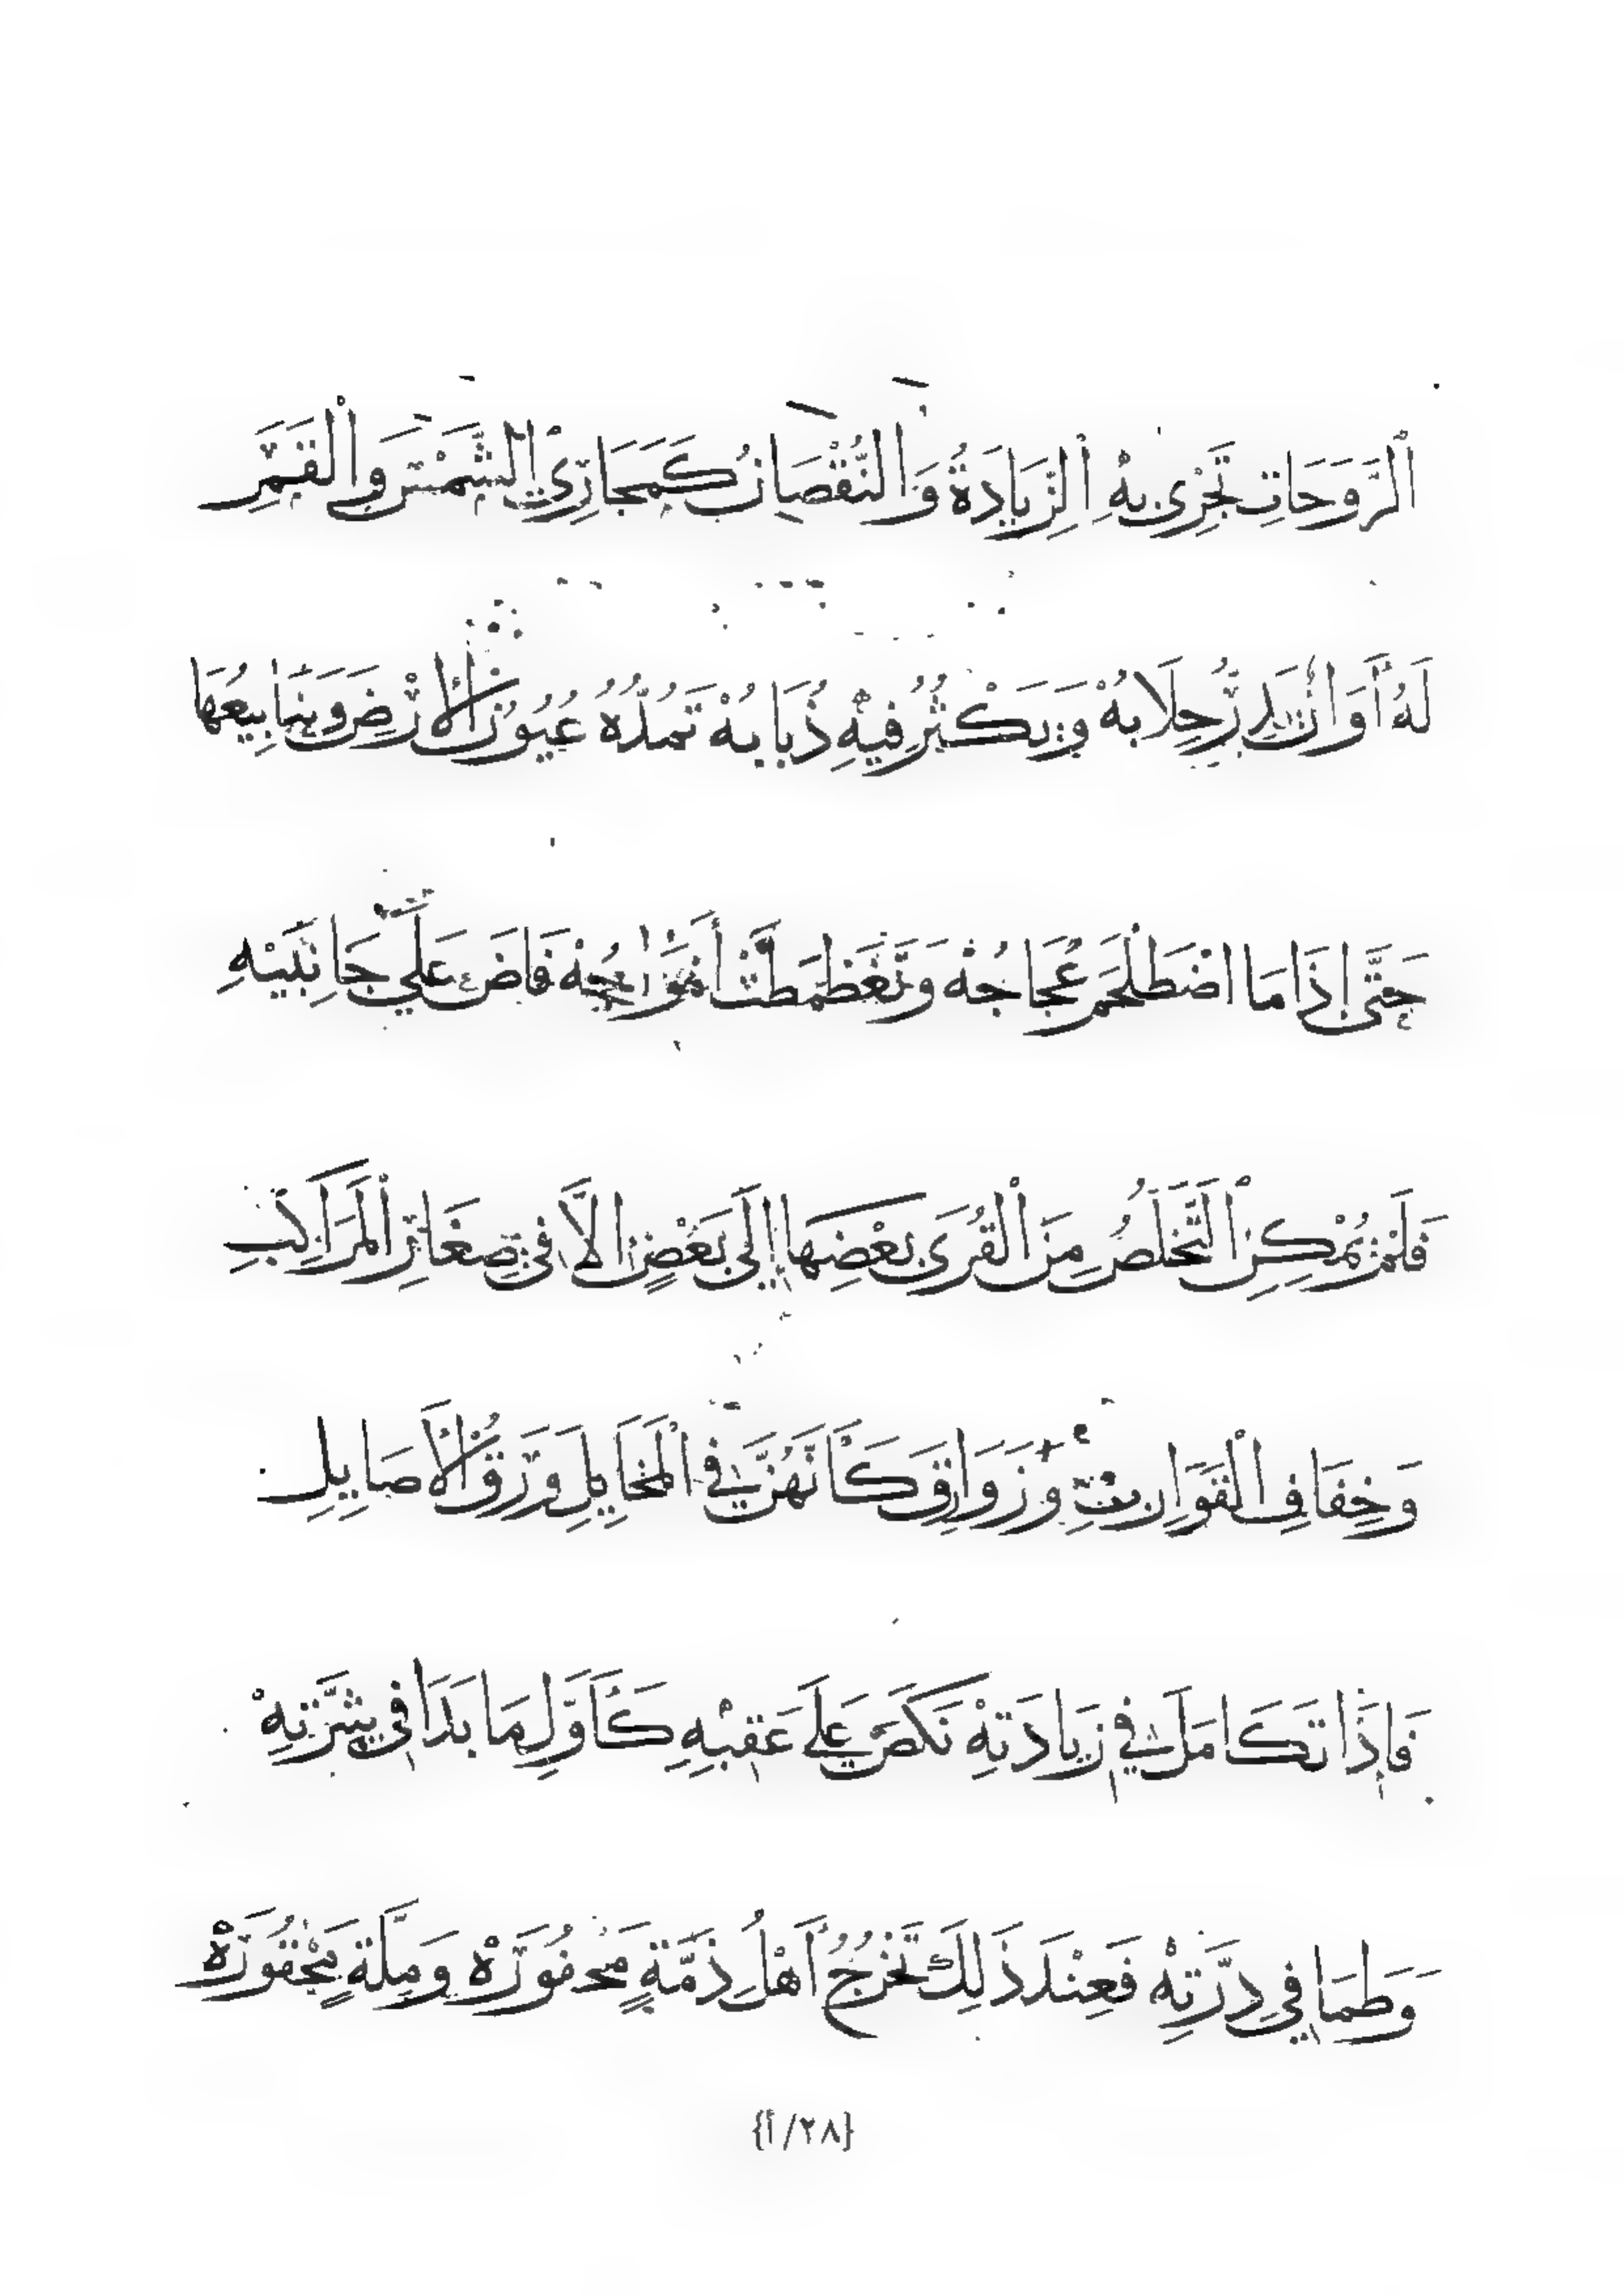 ٱلرَّوَحَاتِ تَجْرِى بِهِ ٱلزِّيَادَةُ وَالنُّقْصَانُ كَمَجَارِي الشَّمْسِ وَالْقَمَرِ
لَهُ أَوَانٌ يَدِرُّ حِلَابُهُ وَيَكْثُرُ فِيْهِ ذُبَابُهُ تَمُدُّهُ عُيُونُ الْأَرْضِ وَيَنَابِيعُهَا
حَتَّى إِذَا مَا اضْطَلَحَمَ عُجَاجُهُ وَتَغَظْمَطَتْ أَمْوَاجُهُ فَاضَ عَلَي جَانِبَيْهِ
فَلَمْ يُمْكِنِ ٱلتَّخَلُّصُ مِنَ ٱلْقُرَى بَعْضِهَا إِلَى بَعْضٍ إِلَّا فِي صِغَارِ ٱلْمَرَاكِبِ
وَخِفَافِ الْقَوَارِبِ وَزَوَارِقَ كَأَنَّهُنَّ فِي ٱلْمَخَايِلِ وَرَقُ الْأَصَايِلِ
فَإِذَا تَكَامَلَ فِي زِيَادَتِهِ نَكَصَ عَلَى عَقِبْهِ كَأَوَّلِ مَا بَدَا فِي شِرَّتِهِ
وَطَمَا فِي دِرَّتِهِ فَعِنْدَ ذَلِكَ تَخْرُجُ أَهْلُ ذِمَّةٍ مَحْفُورَةْ وَمِلَّةٍ مَحْقُورَةْ
{٢٨/أ}